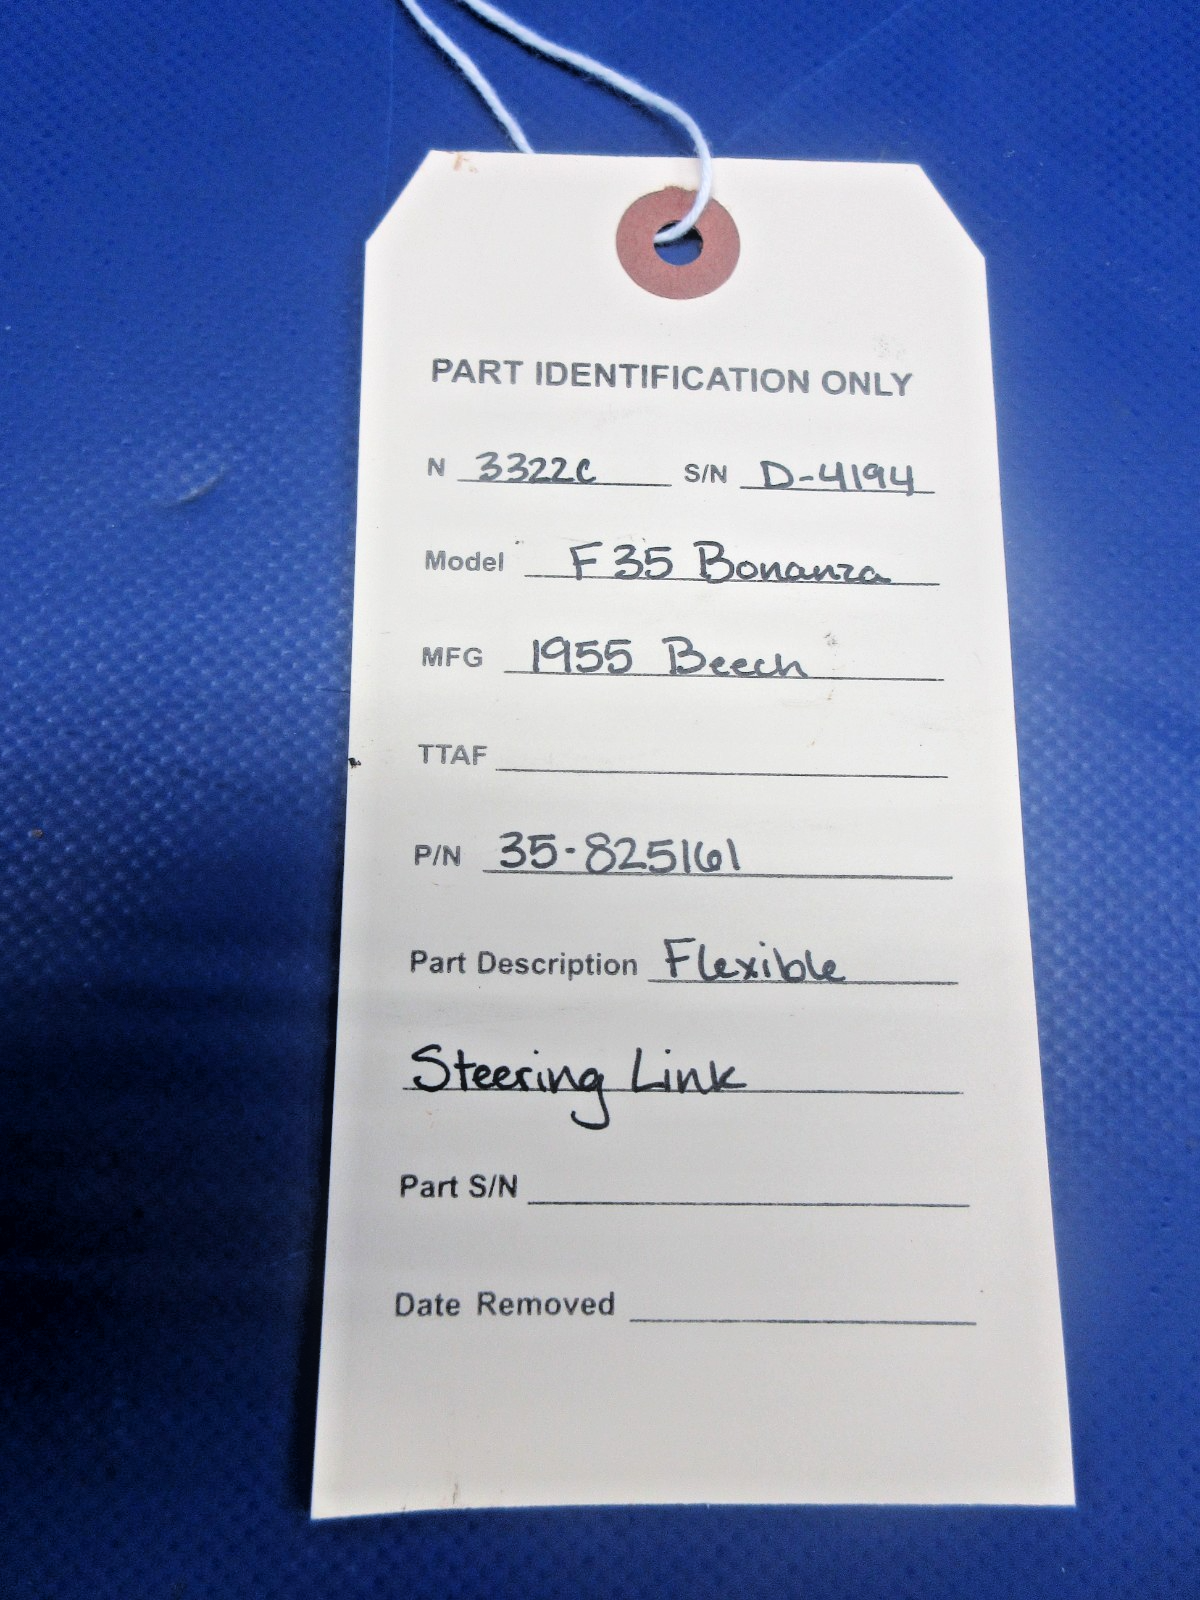 PART IDENTIFICATION ONLY
N 3322C S/N D-4194
Model F35 Bonanza
MFG 1955 Beech
TTAF
P/N 35-825161
Part Description Flexible
Steering Link
Part S/N
Date Removed